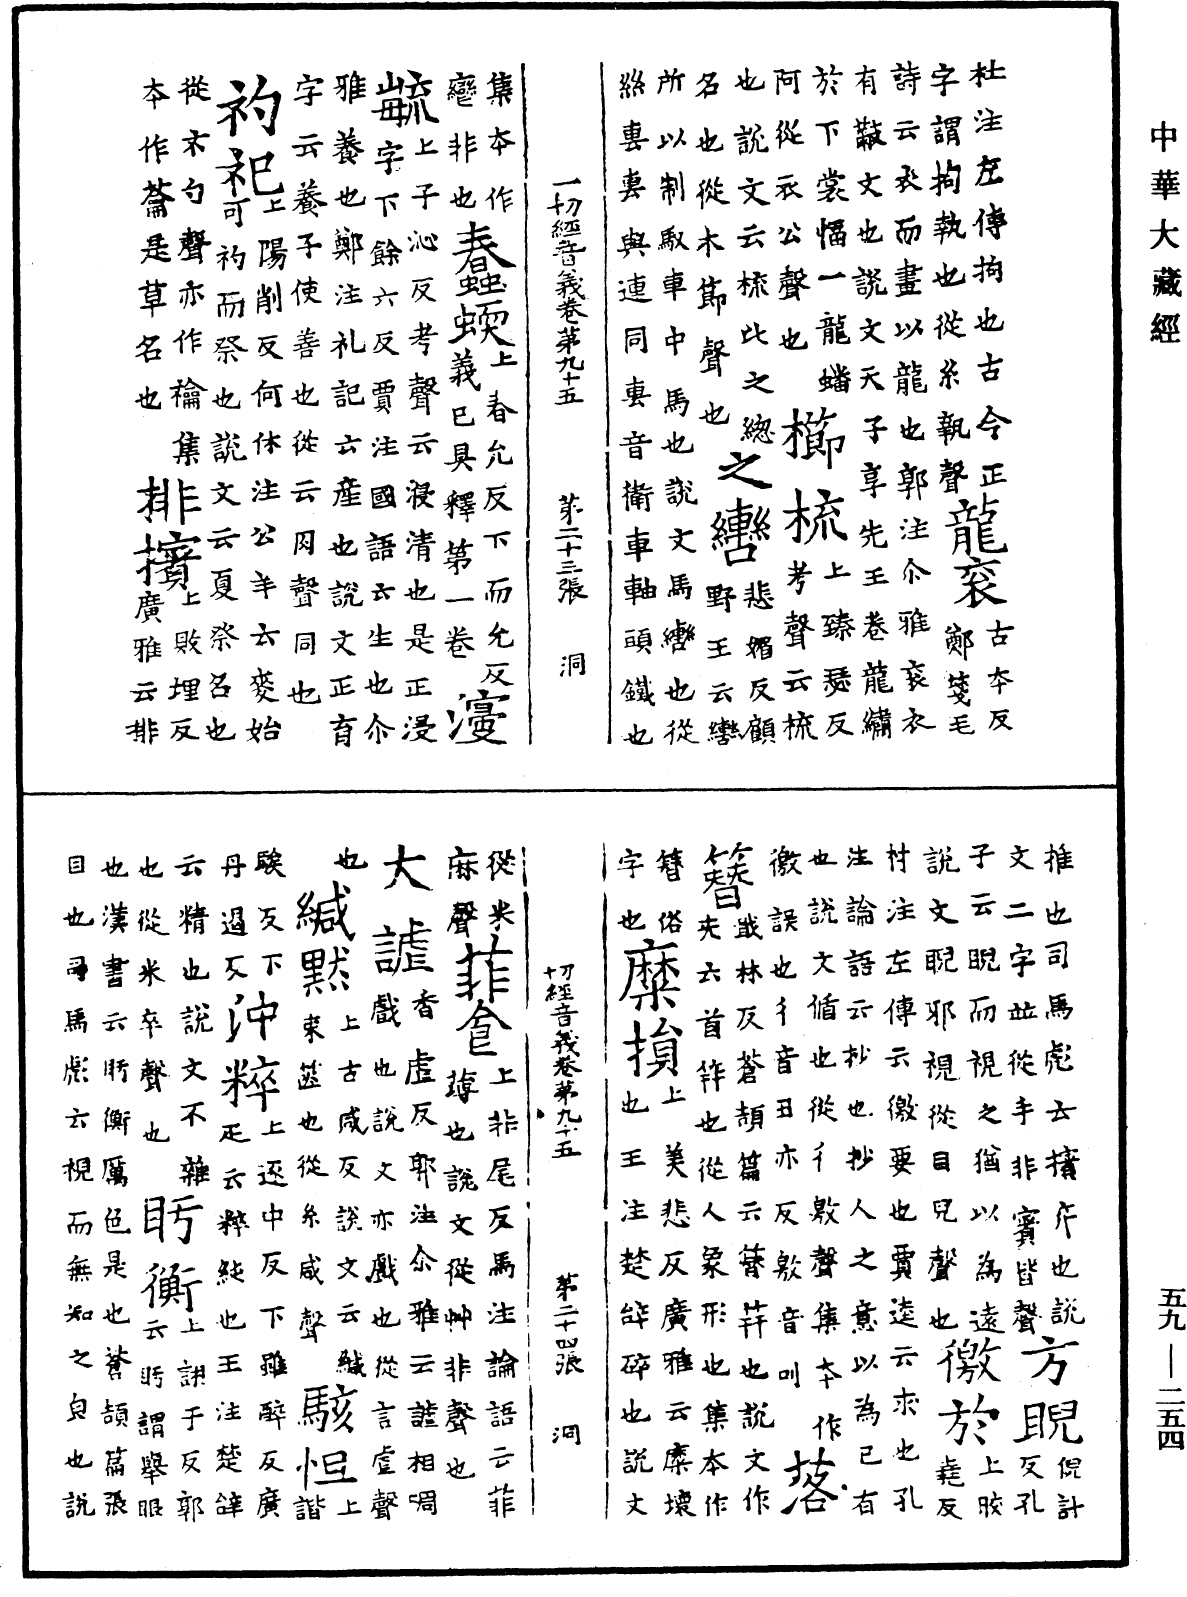 中華大藏經
杜注左傳拘也古今正龍衮古本反
字謂拘執也從糸執聲鄭箋毛
詩云衣而畫以龍也郭注尒雅衮衣
有黻文也說文天子享先王卷龍繡
於下裳幅一龍蟠櫛梳上臻瑟反
阿從衣公聲也考聲云梳
也說文云梳比之緫之轡悲媚反顧
名也從木節聲也野王云轡
所以制馭車中馬也說文馬轡也從
絲軎軎與連同軎音衛車軸頭鐵也
一切經音義卷第九十五 第二十三張 洞
集本作蠢蝡上春允反下而允反
蠻非也義已具釋第一卷濅
上子沁反考聲云浸清也是正浸
毓字下餘六反賈注國語云生也尒
雅養也鄭注礼記云產也說文正育
字云養子使善也從云肉聲同也
礿祀上陽削反何休注公羊云麥始
可礿而祭也說文云夏祭名也
從示勺聲亦作禴集排擯上敗埋反
本作蘥是草名也廣雅云排
推也司馬彪云擯斥也說方睨倪計
文二字並從手非賓皆聲反孔
子云睨而視之猶以為遠徼於上胶
說文睨邪視從目兒聲也堯反
杜注左傳云徼要也賈逵云求也孔
注論語云抄也抄人之意以為己有
也說文循也從彳敫聲集本作落
徼誤也彳音丑亦反敫音叫
簪戢林反蒼頡篇云簪笄也說文作
兂云首笄也從人象形也集本作
簪俗糜損上美悲反廣雅云糜壞
字也也王注楚辞碎也說文
切經音義卷第九十五 第二十四張 洞
從米菲食上非尾反馬注論語云菲
麻聲薄也說文從艸非聲也
大謔香虛反郭注尒雅云謔相啁
戲也說文亦戲也從言虐聲
也緘默上古咸反說文云緘駭怛上
束篋也從糸咸聲諧
駭反下沖粹上逐中反下雖醉反廣
丹遏反疋云粹純也王注楚辞
云精也說文不雜盱衡上詡于反郭
也從米卒聲也云盱謂舉眼
也漢書云盱衡厲色是也蒼頡篇張
目也司馬彪云視而無知之皃也說
五九—二五四